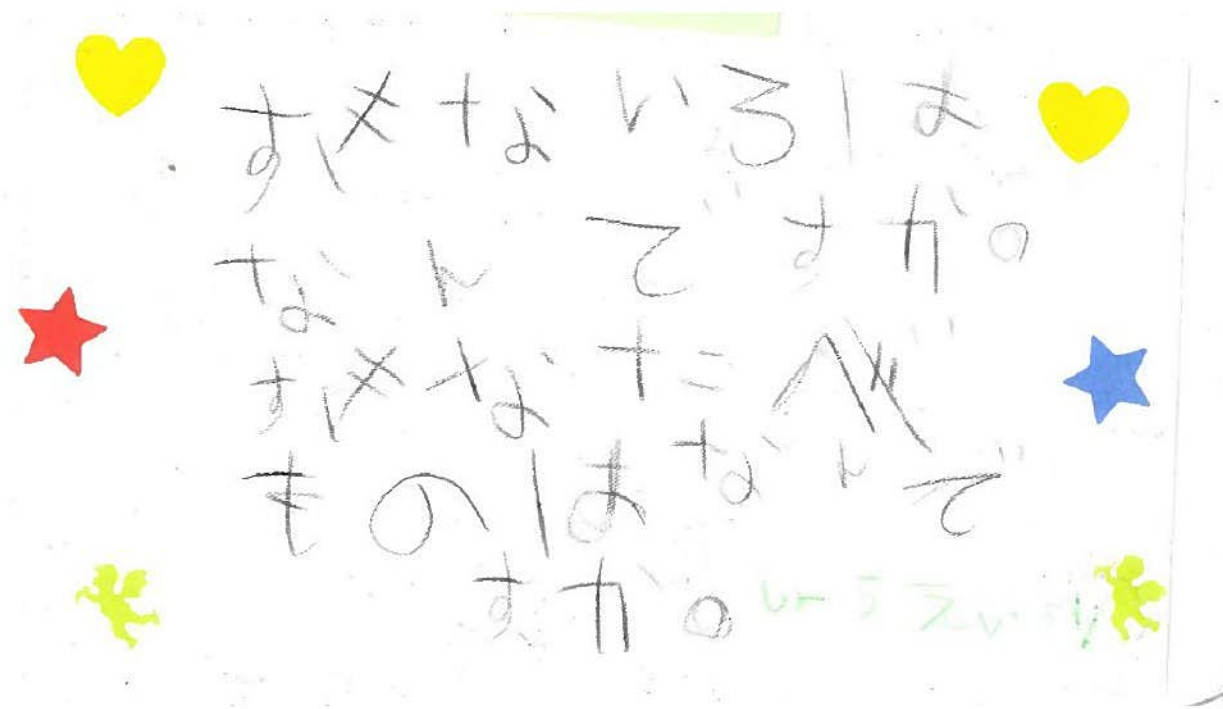 すきないろは
なんですか。
すきなたべ
ものはなんで
すか。